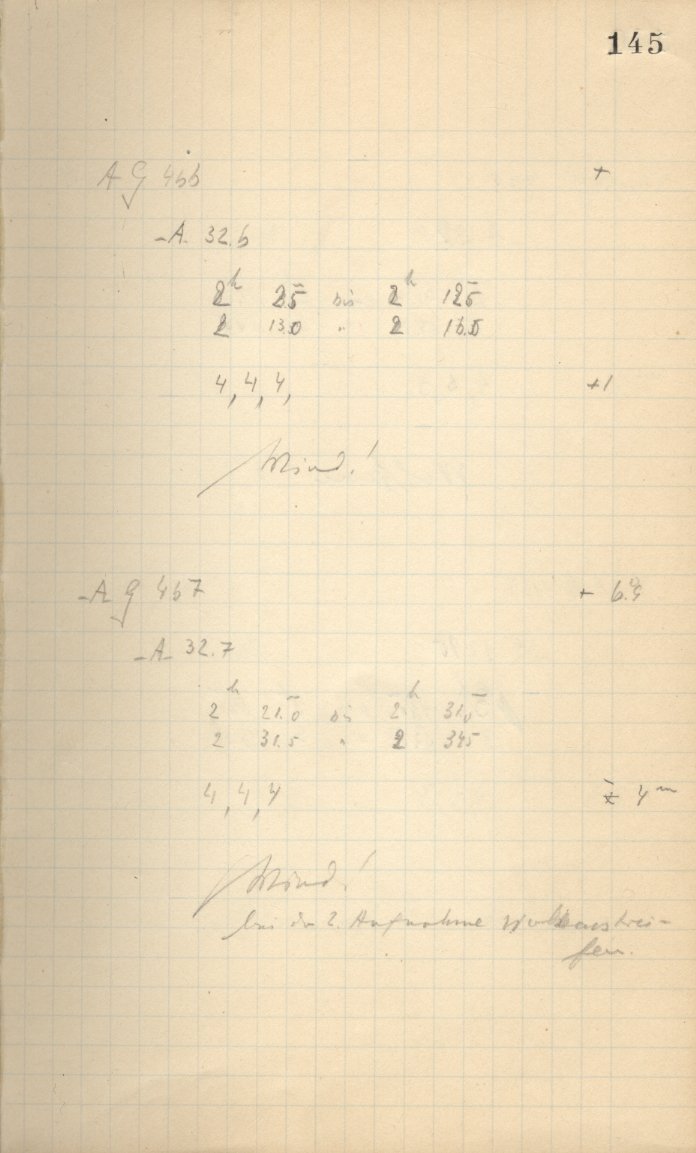 145
AG 466 +
A 32.6
2h 2.5 bis 2h 12.5
2 13.0 " 2 16.0
4, 4, 4, +1
Wind!
AG 467 +
A 32.7
2h 21.0 bis 2h 31.0
2 31.5 " 2 34.5
4, 4, 4 4m
Wind!
bei der 2. Aufnahme Wolkenstrei-
fen.